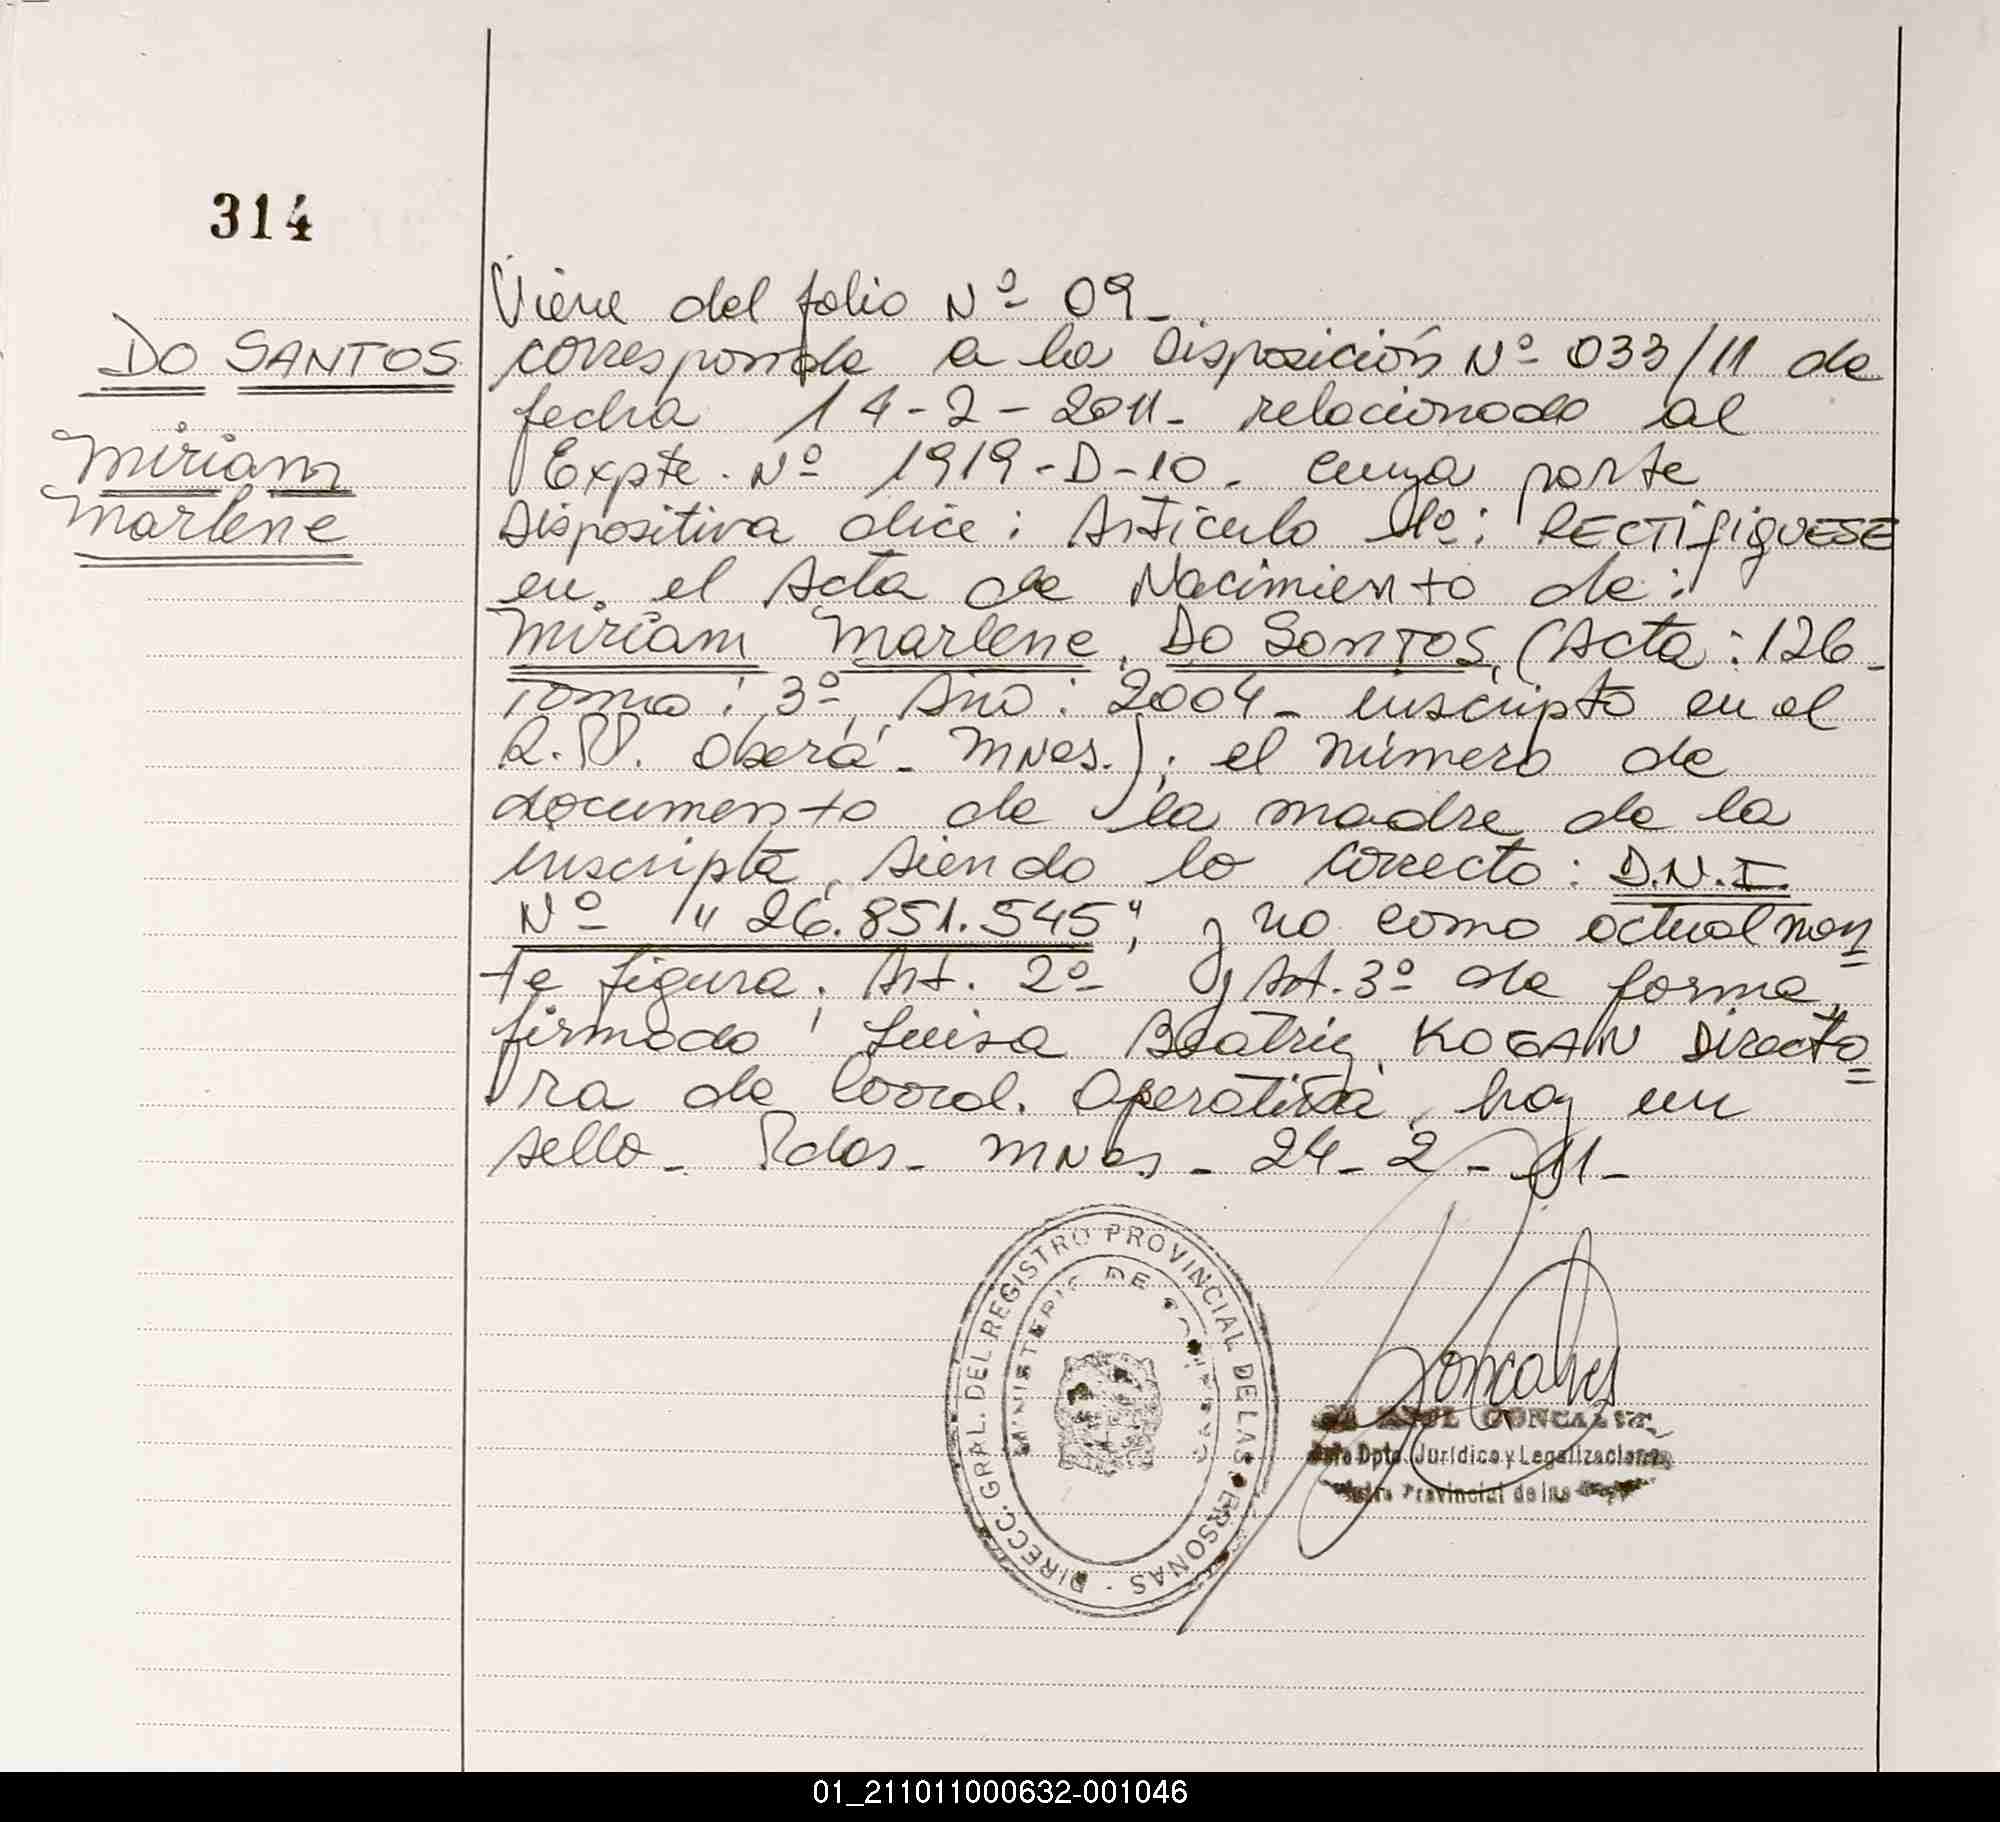 314
DO SANTOS
Miriam
Marlene
Viene del folio Nº 09-
corresponde a la Disposición Nº 033/11 de
fecha 14-2-2011- relacionado al
Expte. Nº 1919-D-10. cuya parte
Dispositiva dice: Artículo 1º: RECTIFIQUESE
en el Acta de Nacimiento de:
Miriam Marlene DO SANTOS, (Acta: 126-
Tomo: 3º, Año: 2004- inscripto en el
R.P. Oberá- MNES.); el número de
documento de la madre de la
inscripta, siendo lo correcto: D.N.I.
Nº "26.851.545", y no como actualmen
te figura. Art. 2º y Art. 3º de forma,
firmado: Luisa Beatriz KOGAN Directo
ra de Coord. Operativa, hay un
sello- Pdas- MNES- 24-2-11-
DIRECC. GRAL. DEL REGISTRO PROVINCIAL DE LAS PERSONAS -
MINISTERIO DE GOBIERNO
Goncalves
GONCALVES
Jefe Dpto. Jurídico y Legalizaciones
Provincial de las
01_211011000632-001046